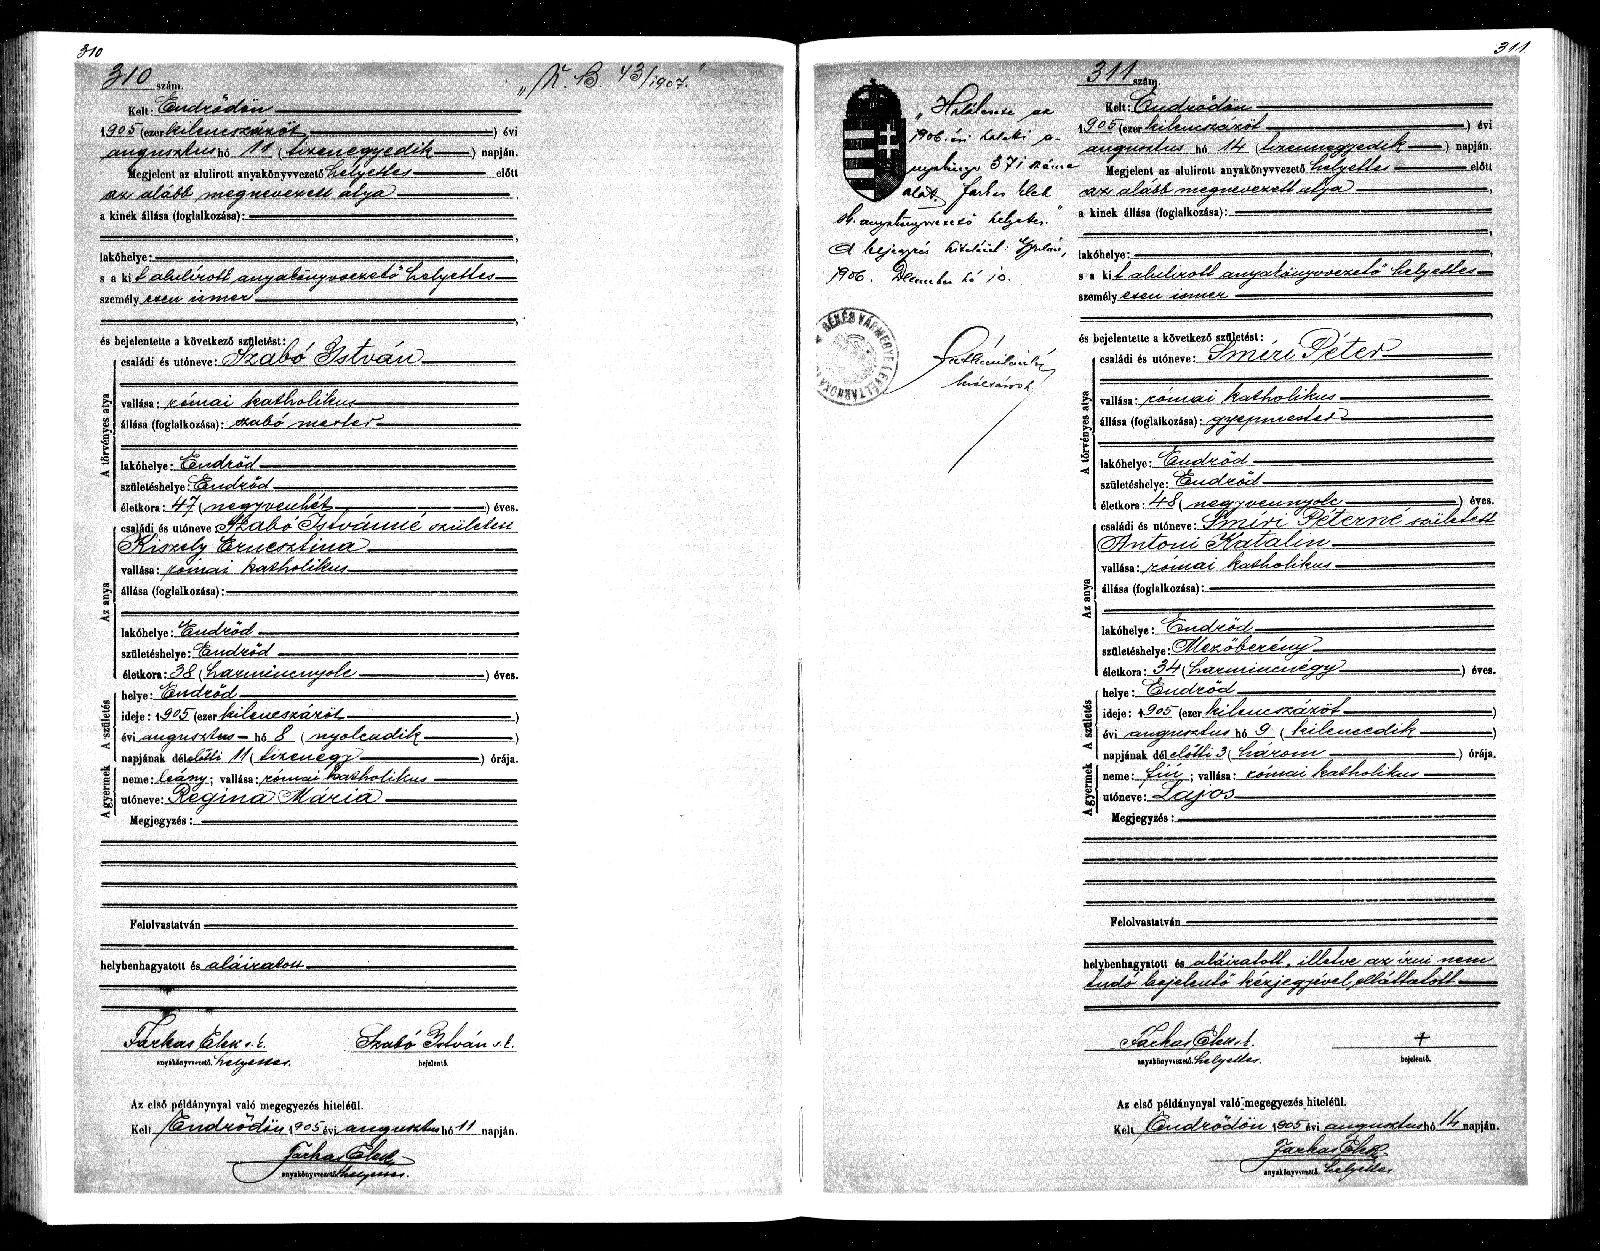 310
310 szám.
„K. B 43/1907."
Kelt: Endrődön
1905 (ezer kilencszázöt) évi
augusztus hó 11 (tizenegyedik) napján.
Megjelent az alulirott anyakönyvvezető helyettes előtt
az alább megnevezett atya,
a kinek állása (foglalkozása):
lakóhelye:
s a kit alulírott anyakönyvvezető helyettes
személyesen ismer
és bejelentette a következő születést:
A törvényes atya
családi és utóneve: Szabó István
vallása: római katholikus
állása (foglalkozása): szabó mester
lakóhelye: Endrőd
születéshelye: Endrőd
életkora: 47 (negyvenhét) éves.
Az anya
családi és utóneve Szabó Istvánné született
Kiszely Ernesztina
vallása: római katholikus
állása (foglalkozása):
lakóhelye: Endrőd
születéshelye: Endrőd
életkora: 38 (harmincnyolc) éves.
A születés
helye: Endrőd
ideje: 1905 (ezer kilencszázöt)
évi augusztus hó 8 (nyolcadik)
napjának délelőtti 11 (tizenegy) órája.
A gyermek
neme: leány; vallása: római katholikus
utóneve: Regina Mária
Megjegyzés:
Felolvastatván
helybenhagyatott és aláiratott
Farkas Elek s.k. Szabó István s.k.
anyakönyvvezető helyettes. bejelentő.
Az első példánynyal való megegyezés hiteléül.
Kelt Endrődön 1905 évi augusztus hó 11 napján.
Farkas Elek
anyakönyvvezető helyettes.
311
„Halálesete az
1906. évi halotti a-
nyakönyv 371 száma
alatt. Farkas Elek
sk. anyakönyvvezető helyettes."
A bejegyzés hiteléül Gyulán,
1906. December hó 10.
BÉKÉS VÁRMEGYE LEVÉLTÁRNOKA
311 szám.
Kelt: Endrődön
1905 (ezer kilencszázöt) évi
augusztus hó 14 (tizennegyedik) napján.
Megjelent az alulirott anyakönyvvezető helyettes előtt
az alább megnevezett atya,
a kinek állása (foglalkozása):
lakóhelye:
s a kit alulírott anyakönyvvezető helyettes
személyesen ismer
és bejelentette a következő születést:
A törvényes atya
családi és utóneve: Smiri Péter
vallása: római katholikus
állása (foglalkozása): gyepmester
lakóhelye: Endrőd
születéshelye: Endrőd
életkora: 48 (negyvennyolc) éves.
Az anya
családi és utóneve: Smiri Péterné született
Antoni Katalin
vallása: római katholikus
állása (foglalkozása):
lakóhelye: Endrőd
születéshelye: Mezőberény
életkora: 34 (harmincnégy) éves.
A születés
helye: Endrőd
ideje: 1905 (ezer kilencszázöt)
évi augusztus hó 9 (kilencedik)
napjának délelőtti 3 (három) órája.
A gyermek
neme: fiú; vallása: római katholikus
utóneve: Lajos
Megjegyzés:
Felolvastatván
helybenhagyatott és aláiratott, illetve az írni nem
tudó bejelentő kézjegyével elláttatott
Farkas Elek s.k. +
anyakönyvvezető helyettes. bejelentő.
Az első példánynyal való megegyezés hiteléül.
Kelt Endrődön 1905 évi augusztus hó 14 napján.
Farkas Elek
anyakönyvvezető helyettes